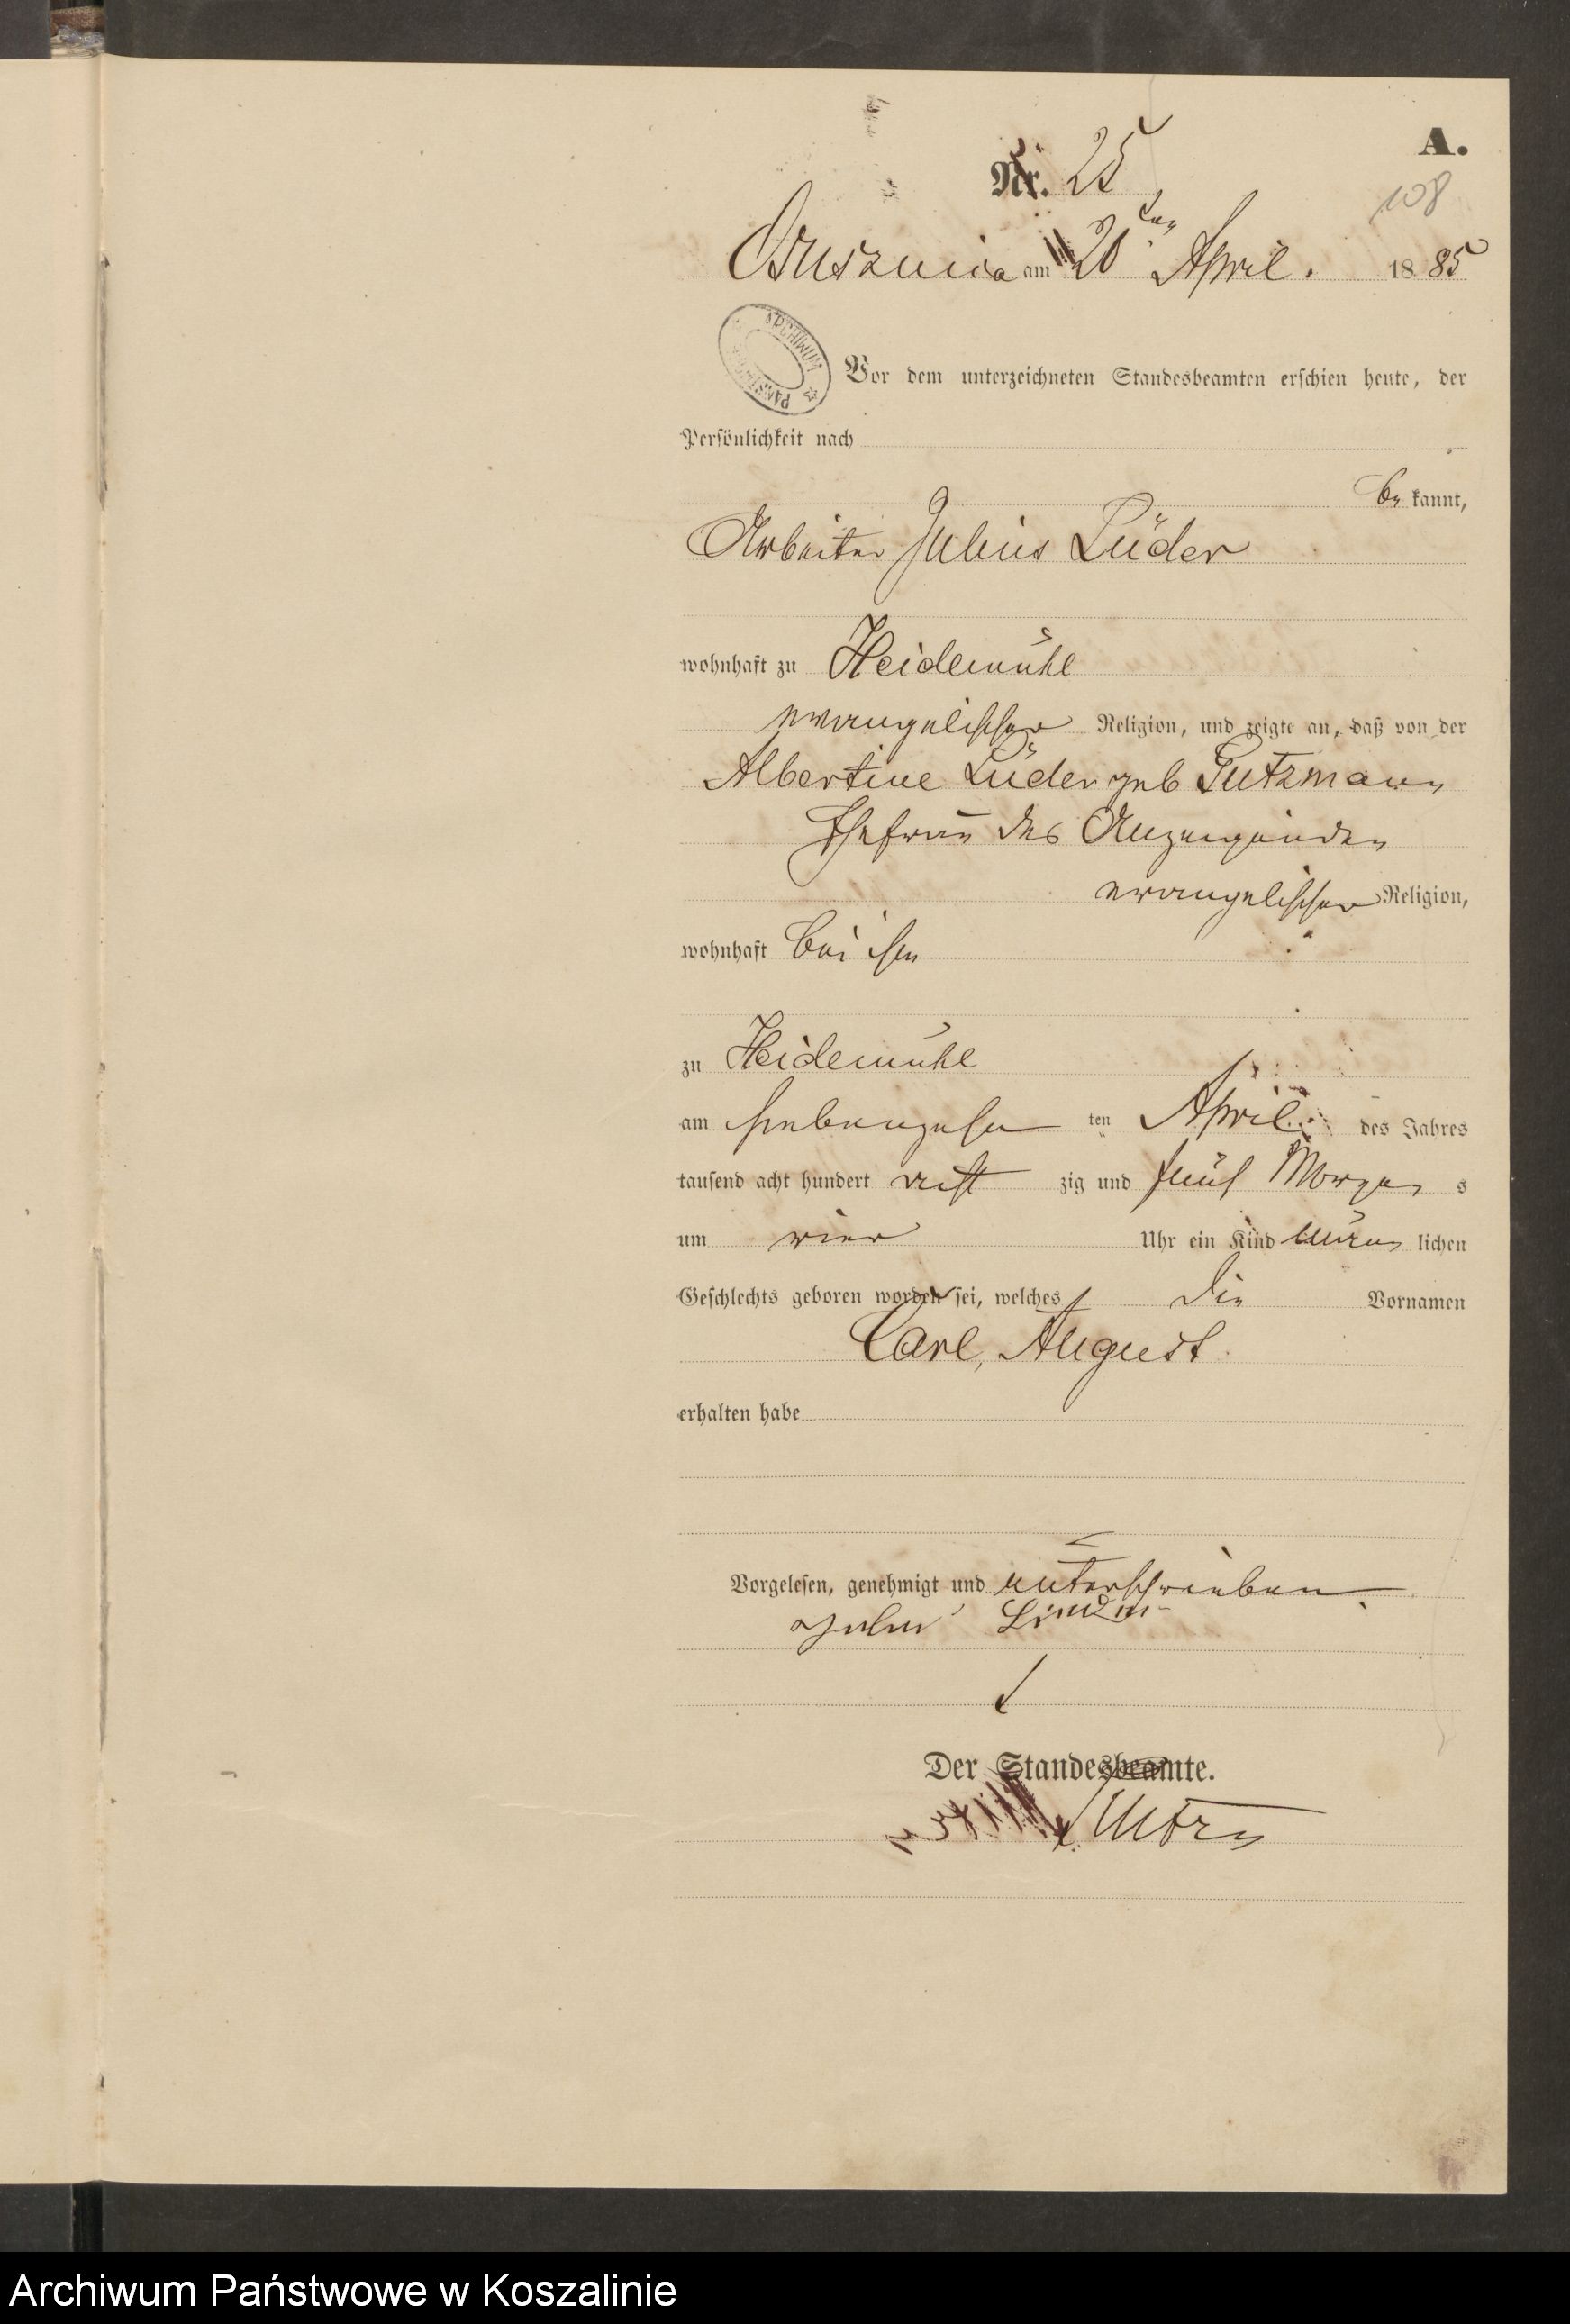 A.
Nr. 25
108
Osusznica am 20ten April. 1885
ARCHIWUM
Vor dem unterzeichneten Standesbeamten erschien heute, der
Persönlichkeit nach
be kannt,
Arbeiter Julius Lüder
wohnhaft zu Heidemühl
evangelischer Religion, und zeigte an, daß von der
Albertine Lüder geb Gutzmann
Ehefrau des Anzeigenden
evangelischer Religion,
wohnhaft bei ihm
zu Heidemühl
am siebenzehn ten April des Jahres
tausend acht hundert acht zig und fünf Morgen s
um vier Uhr ein Kind männ lichen
Geschlechts geboren worden sei, welches die Vornamen
Carl, August
erhalten habe
Vorgelesen, genehmigt und unterschrieben
Julius Lüder
Der Standesbeamte.
Archiwum Państwowe w Koszalinie